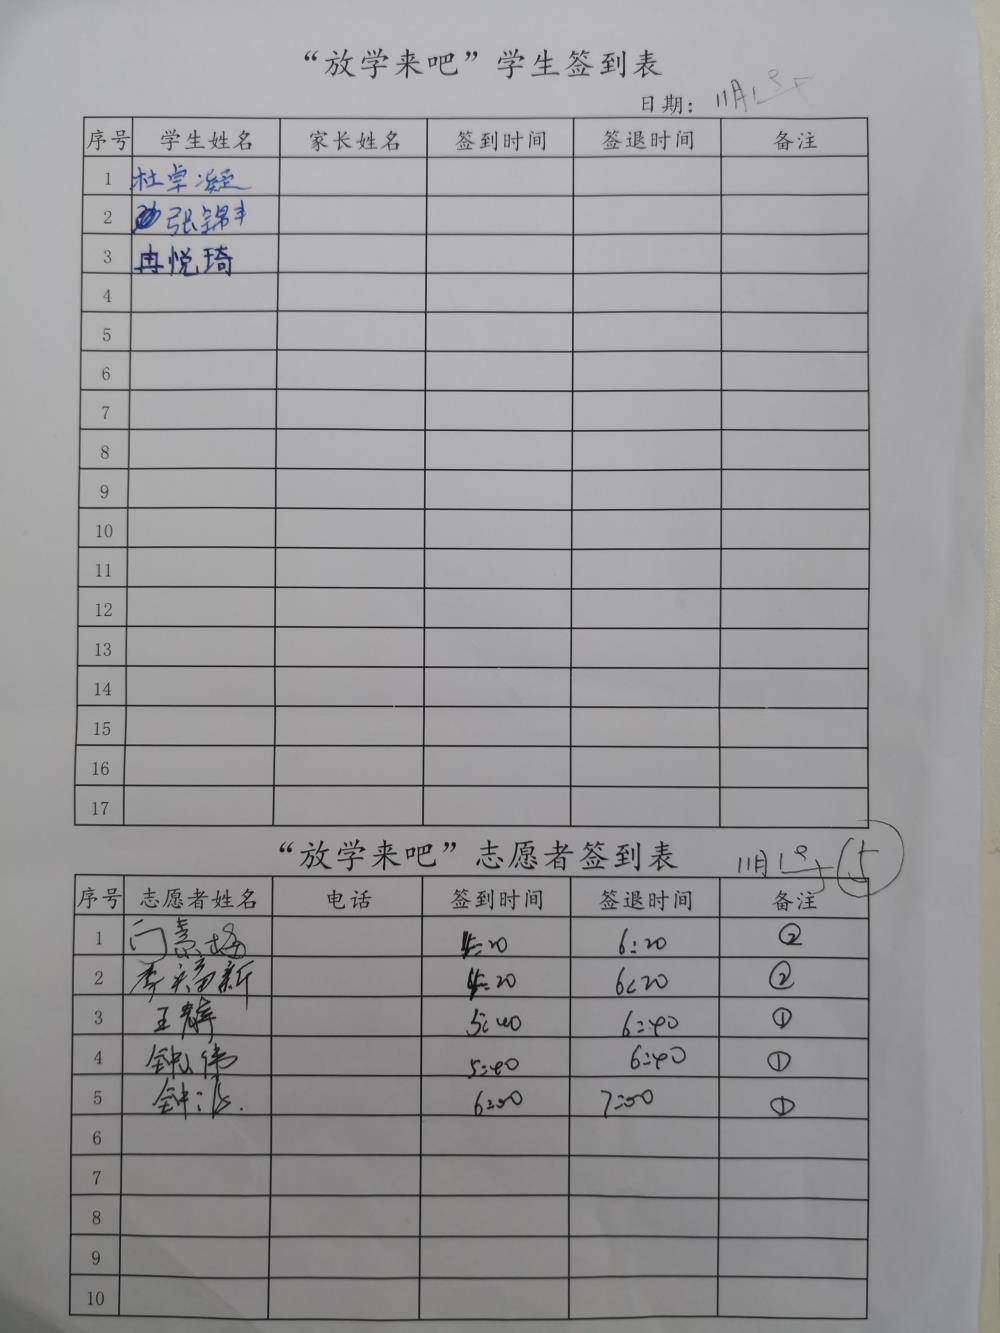 “放学来吧”学生签到表
日期： 11月1号
序号 学生姓名 家长姓名 签到时间 签退时间 备注
1 杜卓凝
2 张锦丰
3 冉悦琦
4
5
6
7
8
9
10
11
12
13
14
15
16
17
“放学来吧”志愿者签到表 11月1号 5
序号 志愿者姓名 电话 签到时间 签退时间 备注
1 门素梅 4:20 6:20 ②
2 李 新 4:20 6:20 ②
3 王静 5:40 6:40 ①
4 钟伟 5:40 6:40 ①
5 钟 6:00 7:00 ①
6
7
8
9
10